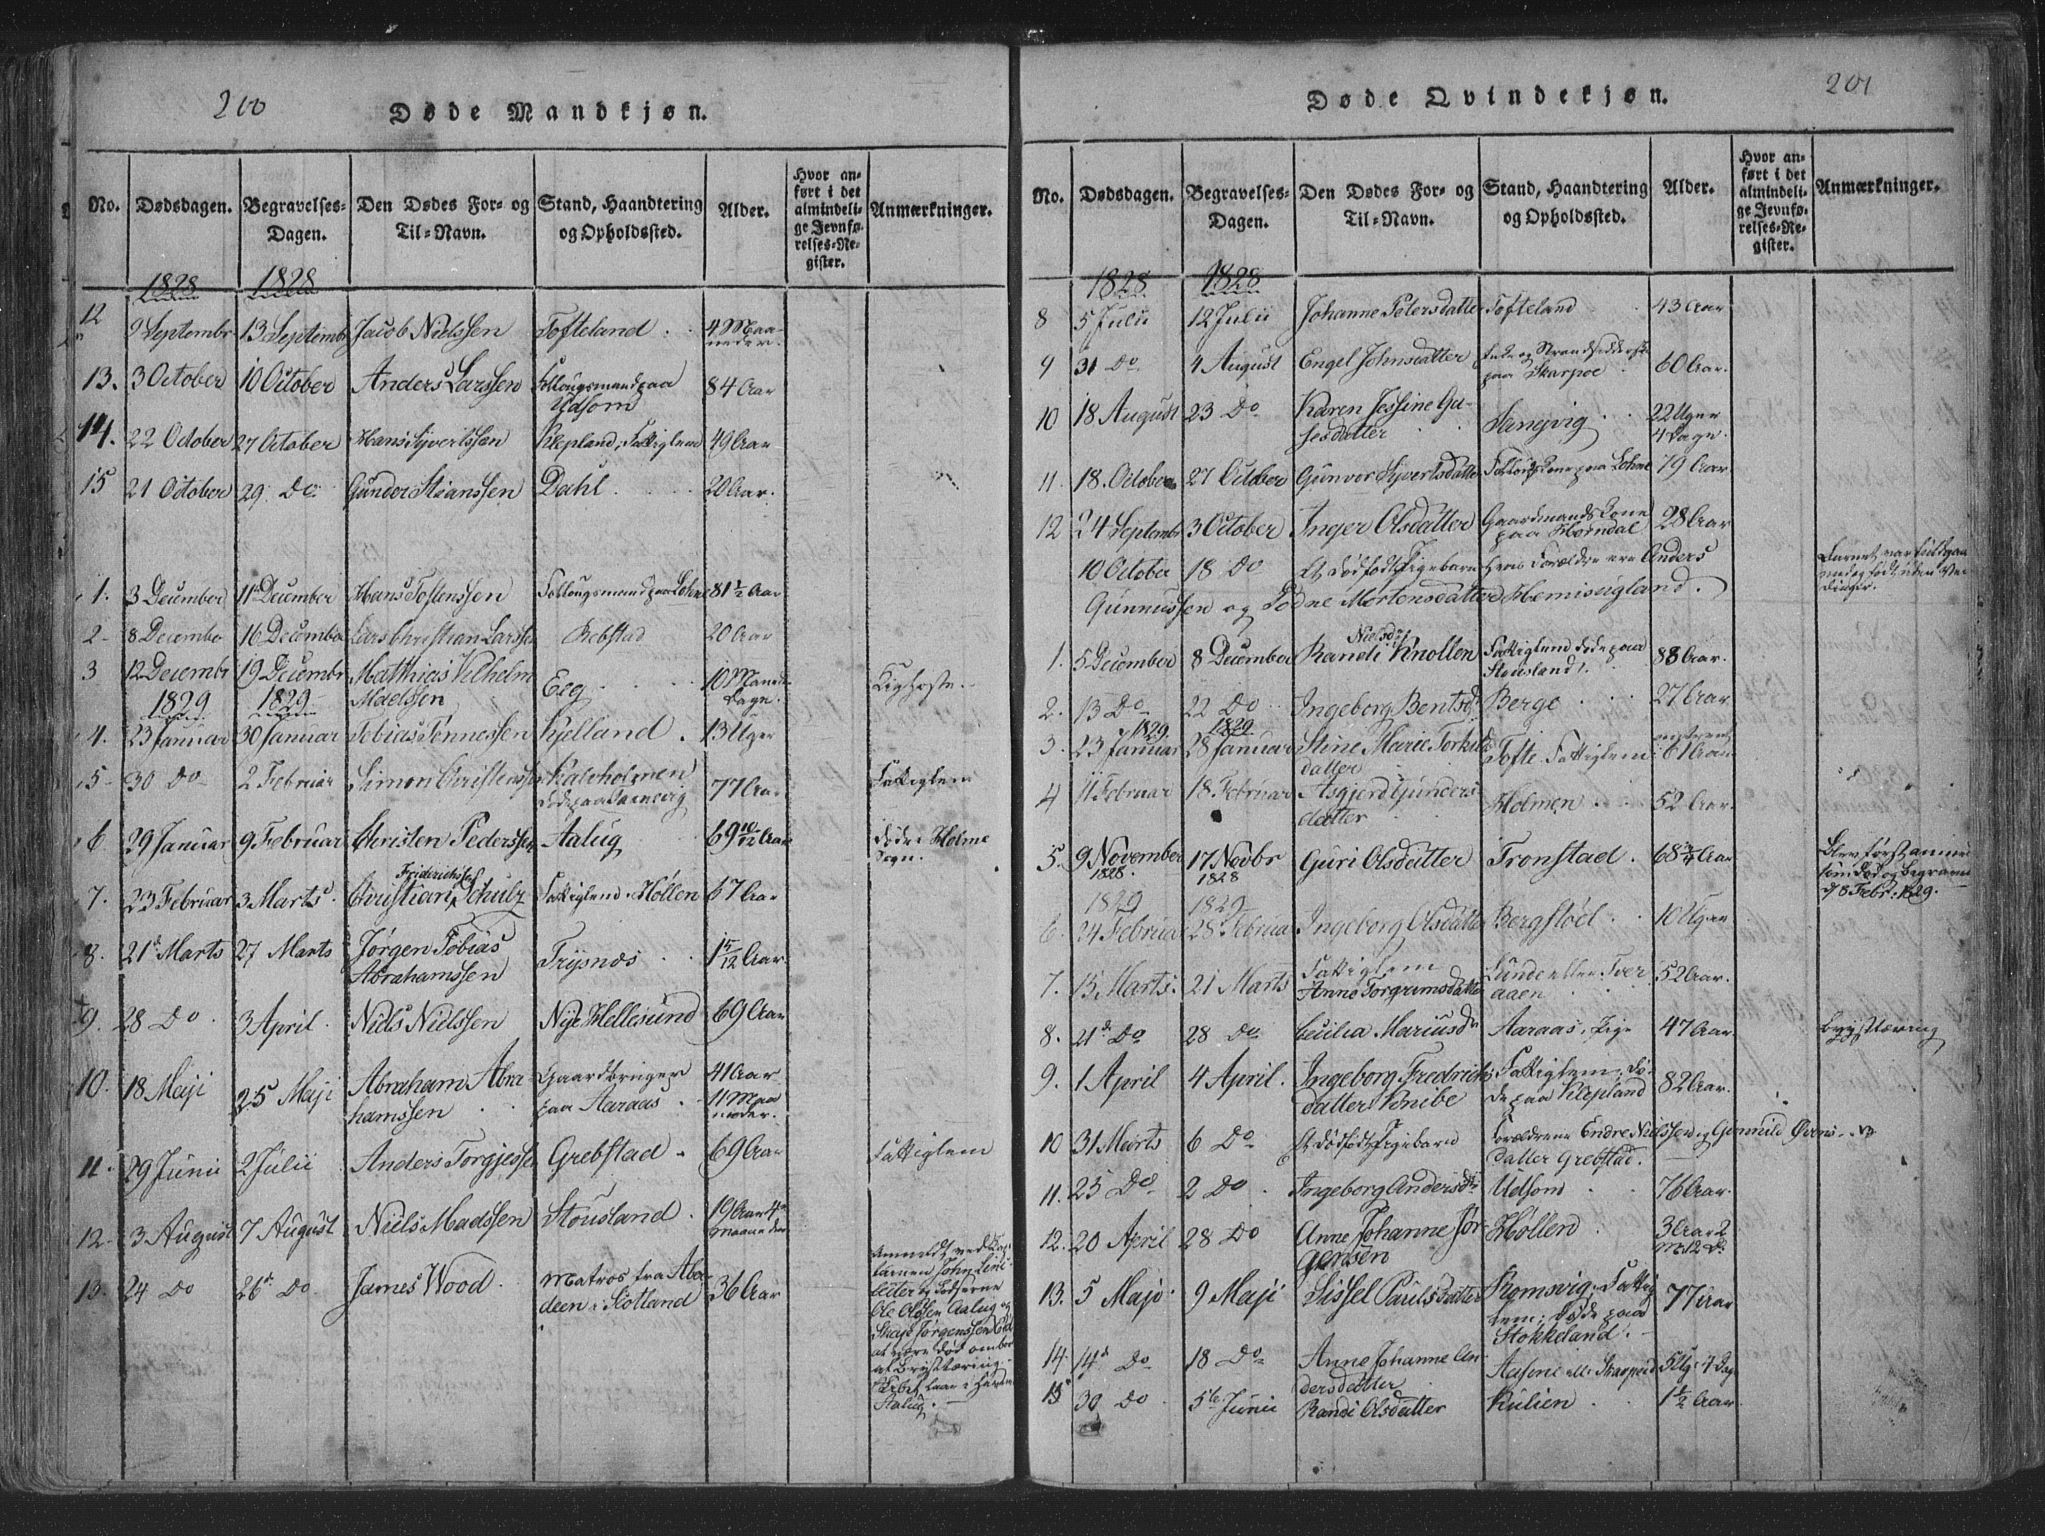 200
Døde Mandkjøn.
No. Dødsdagen. Begravelses-Dagen. Den Dødes For- og Til-Navn. Stand, Haandtering og Opholdssted. Alder. Hvor anført i det almindelige Jevnførelses-Register. Anmærkninger.
1828 1828
12 9 Septembr 13 Septembr Jacob Nielssen Tofteland 4 Maaneder.
13. 3 October 10 October Anders Larssen Follougsmand paa Udsom 84 Aar
14. 22 October 27 October Hans Sjvertssen Klepland; Fattiglem 49 Aar
15 21 October 29. Do Gunder Stianssen Dahl 20 Aar.
1. 3 December 11 December Hans Tostenssen Follougsmand paa Lohne 81½ Aar
2 8 Decembr 16 Decembr Lars Christian Larssen Rebstad 20 Aar
3 12 Decembr 19 Decembr Matthias Vilhelm Eeg 10 Maaned Dage. Kighoste.
1829 1829
4. 23 Januar 30 Januar Tobias Tønnessen Kjelland. 13 Uger
5 30 Do 2 Februar Simon Christenssen Kalvholmen død paa Langvig 77 Aar Fattiglem
6 29 Januar 9 Februar Christen Pederssen Aalug 69 10/12 Aar Døde i Holme Sogn.
7. 23 Februar 3 Marts Christian Friderichssen Schulz Fattiglem. Høllen 67 Aar
8. 21 Marts 27 Marts Jørgen Tobias Abrahamssen Trysnæs 1 5/12 Aar.
9. 28 Do 3 April Niels Nielssen Nye Hellesund 69 Aar
10. 18 Maji 25 Maji Abraham Abrahamssen Gaardbruger paa Aaraas 41 Aar 11 Maaneder.
11. 29 Junii 2 Julii Anders Torgjessen Grebstad 69 Aar Fattiglem
12. 3 August 7 August Niels Madssen Stousland 19 Aar 4 Maaneder
13. 24 Do 26 Do James Wood Matros fra Aberdeen i Skotland 36 Aar Anmeldt ved
Ole Olssen Aalug og
Jørgenssen
at være død ombord
af Brysttæring.
Aalug.
201
Døde Qvindekjøn.
No. Dødsdagen. Begravelses-Dagen. Den Dødes For- og Til-Navn. Stand, Haandtering og Opholdssted. Alder. Hvor anført i det almindelige Jevnførelses-Register. Anmærkninger.
1828 1828
8 5 Julii 12 Julii Johanne Petersdatter Tofteland 43 Aar
9 31 Do 4 August Engel Johnsdatter Enke og Strandsidderske paa Skarpøe 60 Aar.
10 18 August 23 Do Karen Jessine Gusesdatter Langvig 22 Uger 4 Dage.
11. 18. October 27 October Gunvor Sjvertsdatter Follougskone paa Lohne 79 Aar
12 24 Septembr 3 October Inger Olsdatter Gaardmandskone paa Horndal 28 Aar
10 October 18 Do Et dødfødt Pigebarn hvis Forældre ere Anders
Gunnussen og Mortensdatter Hemisuigland.
1. 5 December 8 December Randi Nielsdr Knollen Fattiglem døde paa Stousland. 88 Aar.
2. 13 Do 22 Do Ingeborg Bentsd. Berge 27 Aar
1829 1829
3. 23 Januar 28 Januar Stine Marie Torkildsdatter Tofte. Fattiglem omtrent 61 Aar
4 11 Februar 18 Februar Asgjerd Gundersdatter Holmen 52 Aar
5. 9 November 1828. 17 Novbr 1828 Guri Olsdatter Tronstad. 68¾ Aar Blev først anmeldt som død og begraven d 8 Febr: 1829.
1829 1829
6. 24 Februar 28 Februar Ingeborg Olsdatter Bergstøl 10 Uger
7. 15 Marts. 21 Marts Fattiglem Anne Torgrimsdatter Lunde eller Tveraaen 52 Aar.
8. 21 Do 28 Do Cecilia Mariusdr Aaraas, Pige 47 Aar Brysttæring
9. 1 April 4 April. Ingeborg Fredrichsdatter Knibe Fattiglem; Døde paa Klepland 82 Aar.
10 31 Marts 6 Do Et dødfødt Pigebarn Forældrene Endre Nielssen og Gunnild datter Grebstad.
11. 25 Do 2 Do Ingeborg Andersdr Udsom 76 Aar.
12. 20 April 28 Do Anne Johanne Jørgensen Høllen 3 Aar 2 M: 12 D.
13. 5 Maji 9 Maji Sissel Paulsdatter Romsvig; Fattiglem; døde paa Stokkeland. 77 Aar
14. 14 Do 18 Do Anne Johanne Andersdatter Skarpeid 5 Ug: 4 Dag
15 30 Do 5te Junii Randi Olsdatter Kulien 1½ Aar